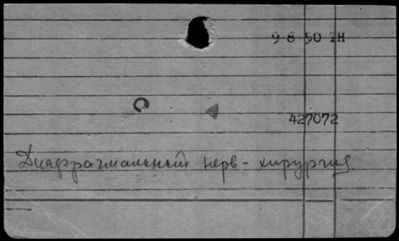 9 8 50 IH
С
427072
Диафрагмальный нерв - хирургия